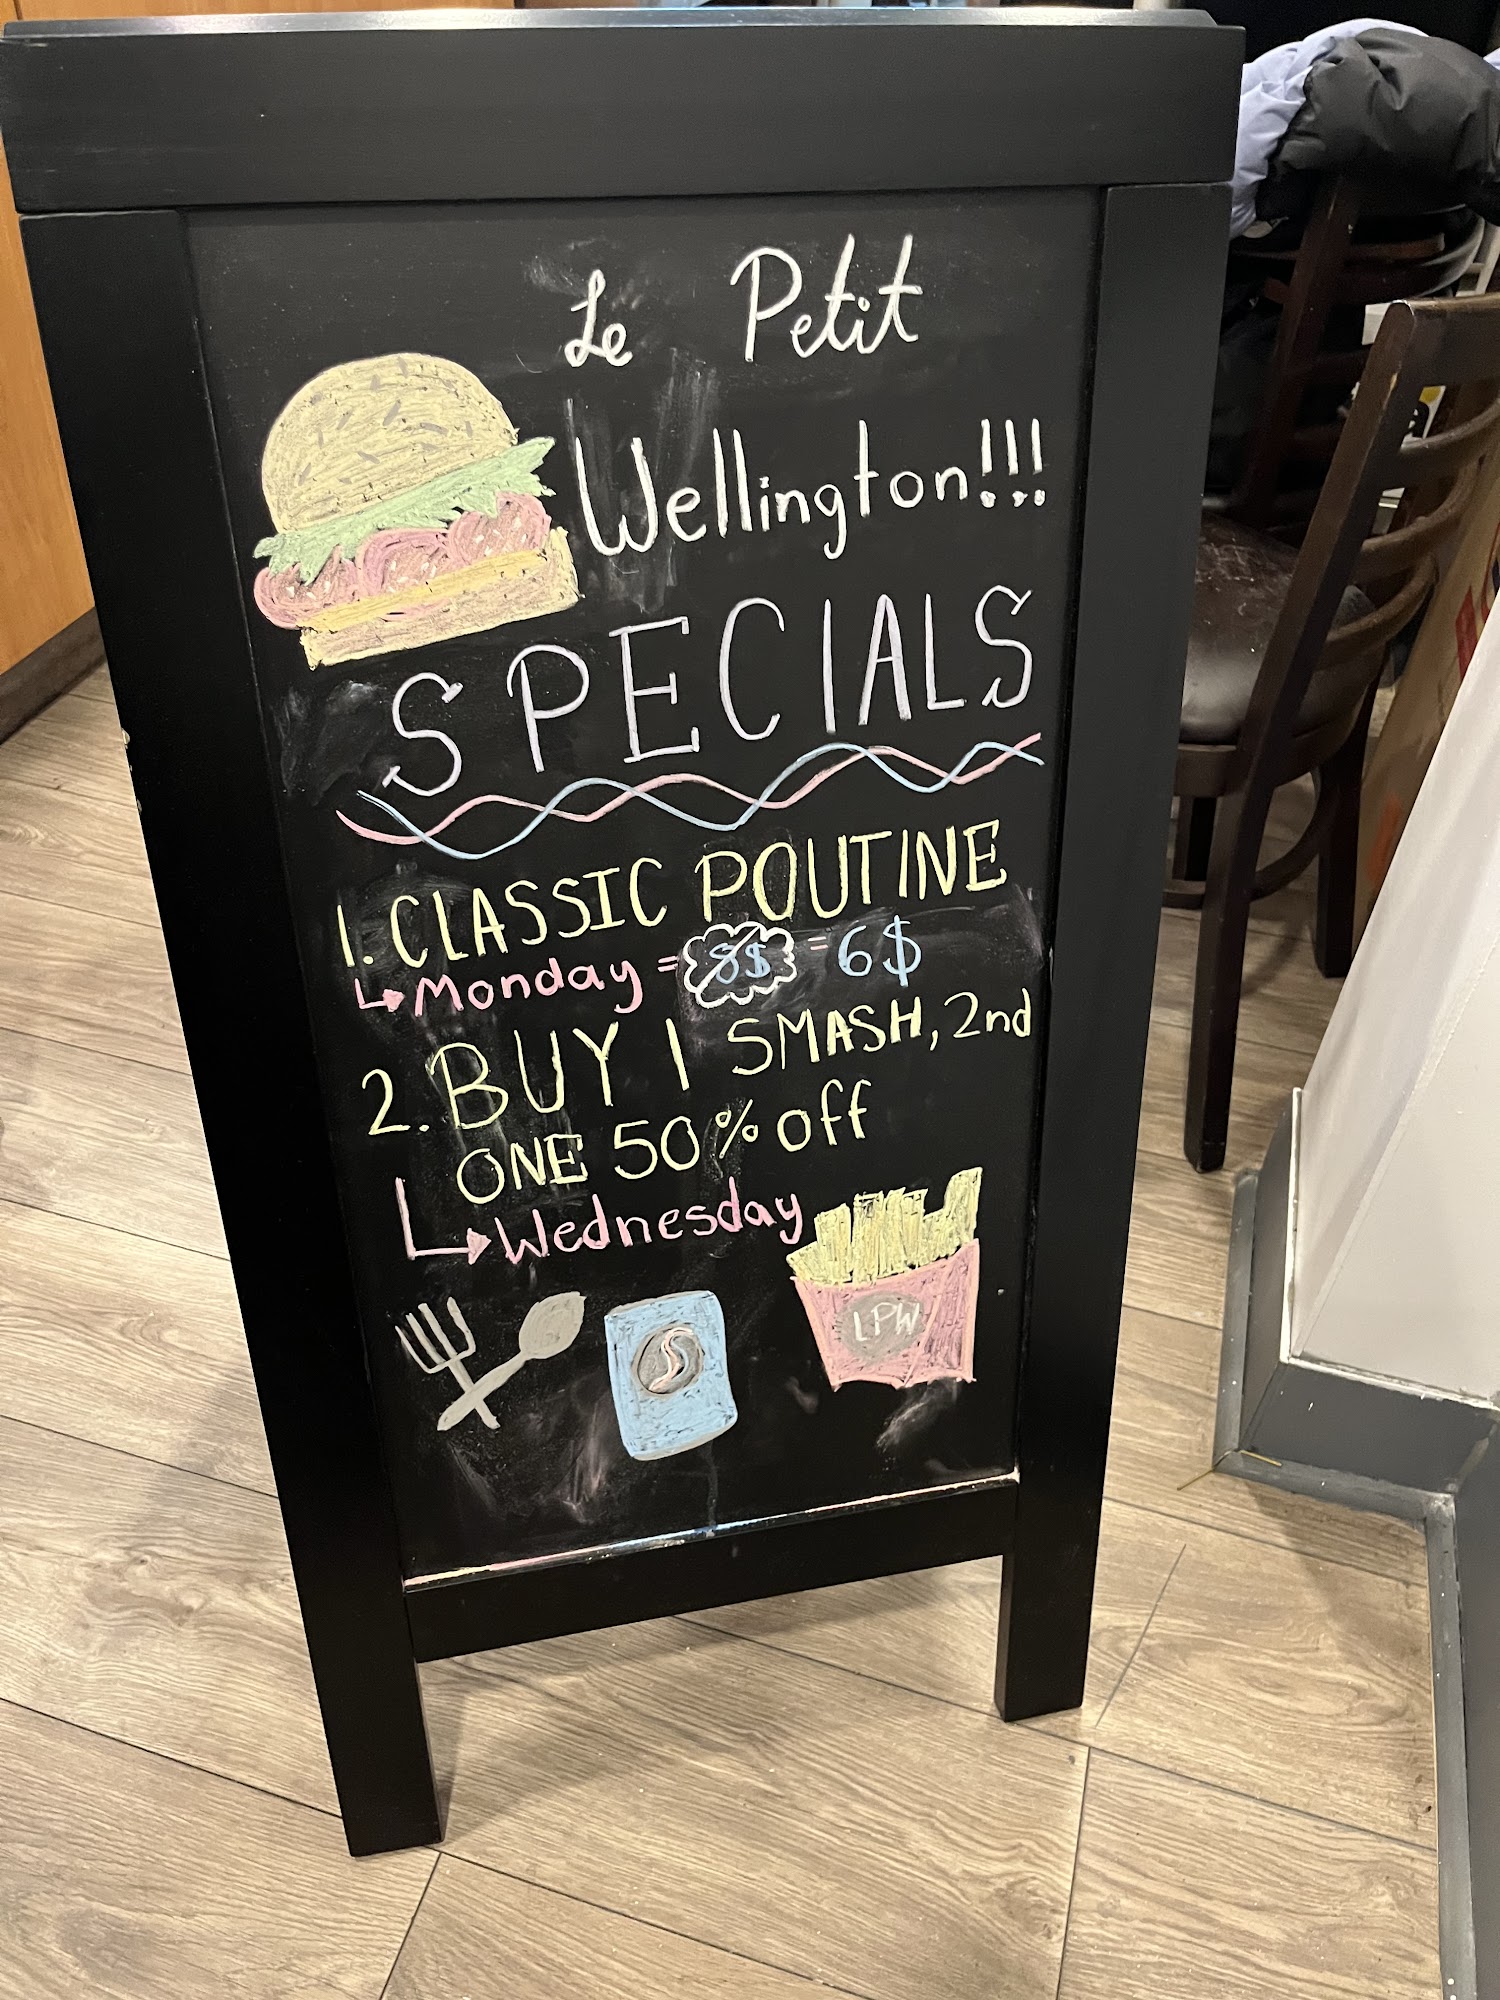 Le Petit
Wellington!!!
SPECIALS
1. CLASSIC POUTINE
Monday = 8$ = 6$
2. BUY 1 SMASH, 2nd
ONE 50% off
Wednesday
LPW